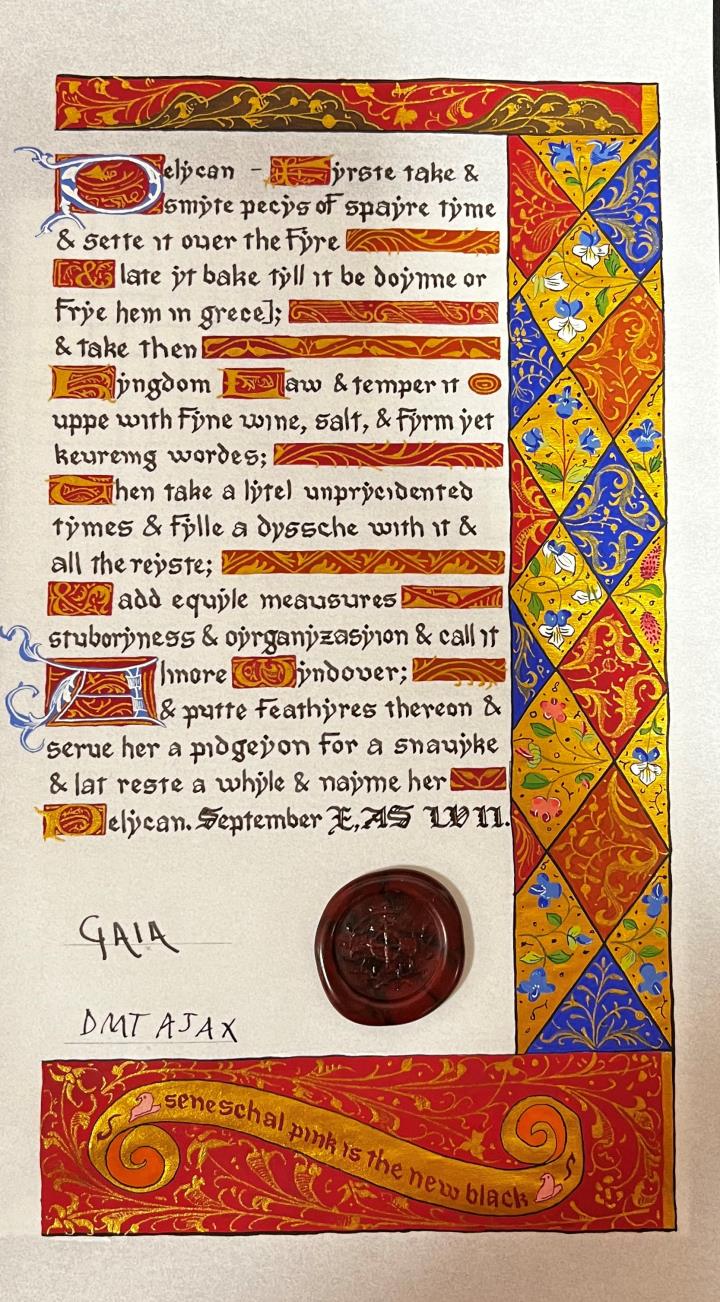 Pelycan - Fyrste take &
smyte pecys of spayre tyme
& sette it over the fyre
& late yt bake tyll it be doynne or
frye hem in grece];
& take then
Kyngdom Law & temper it
uppe with fyne wine, salt, & fyrm yet
keureing wordes;
Then take a lytel unprycidented
tymes & fylle a dyssche with it &
all the reyste;
& add equyle meausures
stuboryness & oyrganyzasyion & call it
Almore Wyndover;
& putte feathyres thereon &
serue her a pidgeyon for a snauyke
& lat reste a whyle & nayme her
Pelycan. September X, AS LVII.
GAIA
DMT AJAX
seneschal pink is the new black